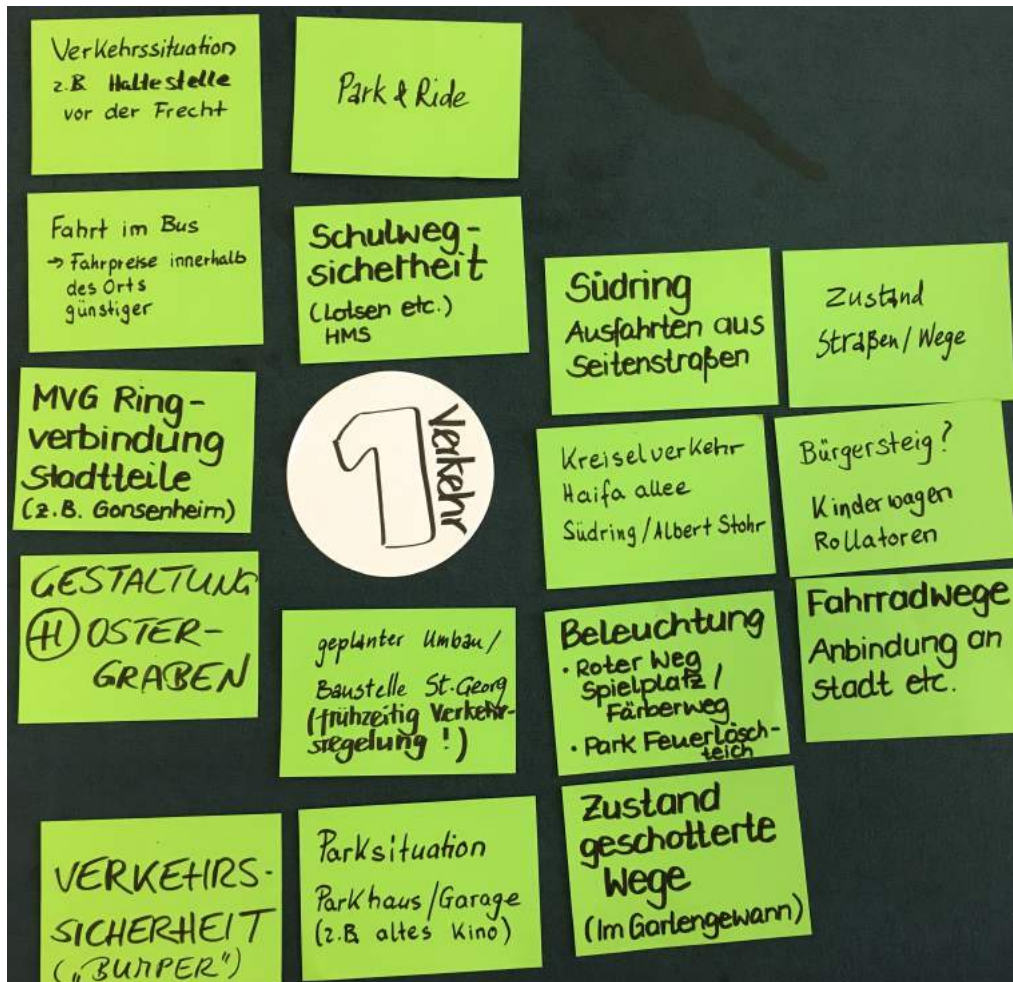 Verkehrssituation
z.B. Haltestelle
vor der Frecht
Park & Ride
Fahrt im Bus
→ Fahrpreise innerhalb
des Orts
günstiger
Schulweg-
sicherheit
(Lotsen etc.)
HMS
Südring
Ausfahrten aus
Seitenstraßen
Zustand
Straßen/Wege
MVG Ring-
verbindung
Stadtteile
(z.B. Gonsenheim)
1
Verkehr
Kreiselverkehr
Haifa allee
Südring/Albert Stohr
Bürgersteig?
Kinderwagen
Rollatoren
GESTALTUNG
(H) OSTER-
GRABEN
geplanter Umbau/
Baustelle St.Georg
(frühzeitig Verkehr-
sregelung!)
Beleuchtung
· Roter Weg
Spielplatz /
Färberweg
· Park Feuerlösch-
teich
Fahrradwege
Anbindung an
Stadt etc.
VERKEHRS-
SICHERHEIT
("BUMPER")
Parksituation
Parkhaus/Garage
(z.B. altes Kino)
Zustand
geschotterte
Wege
(Im Gartengewann)